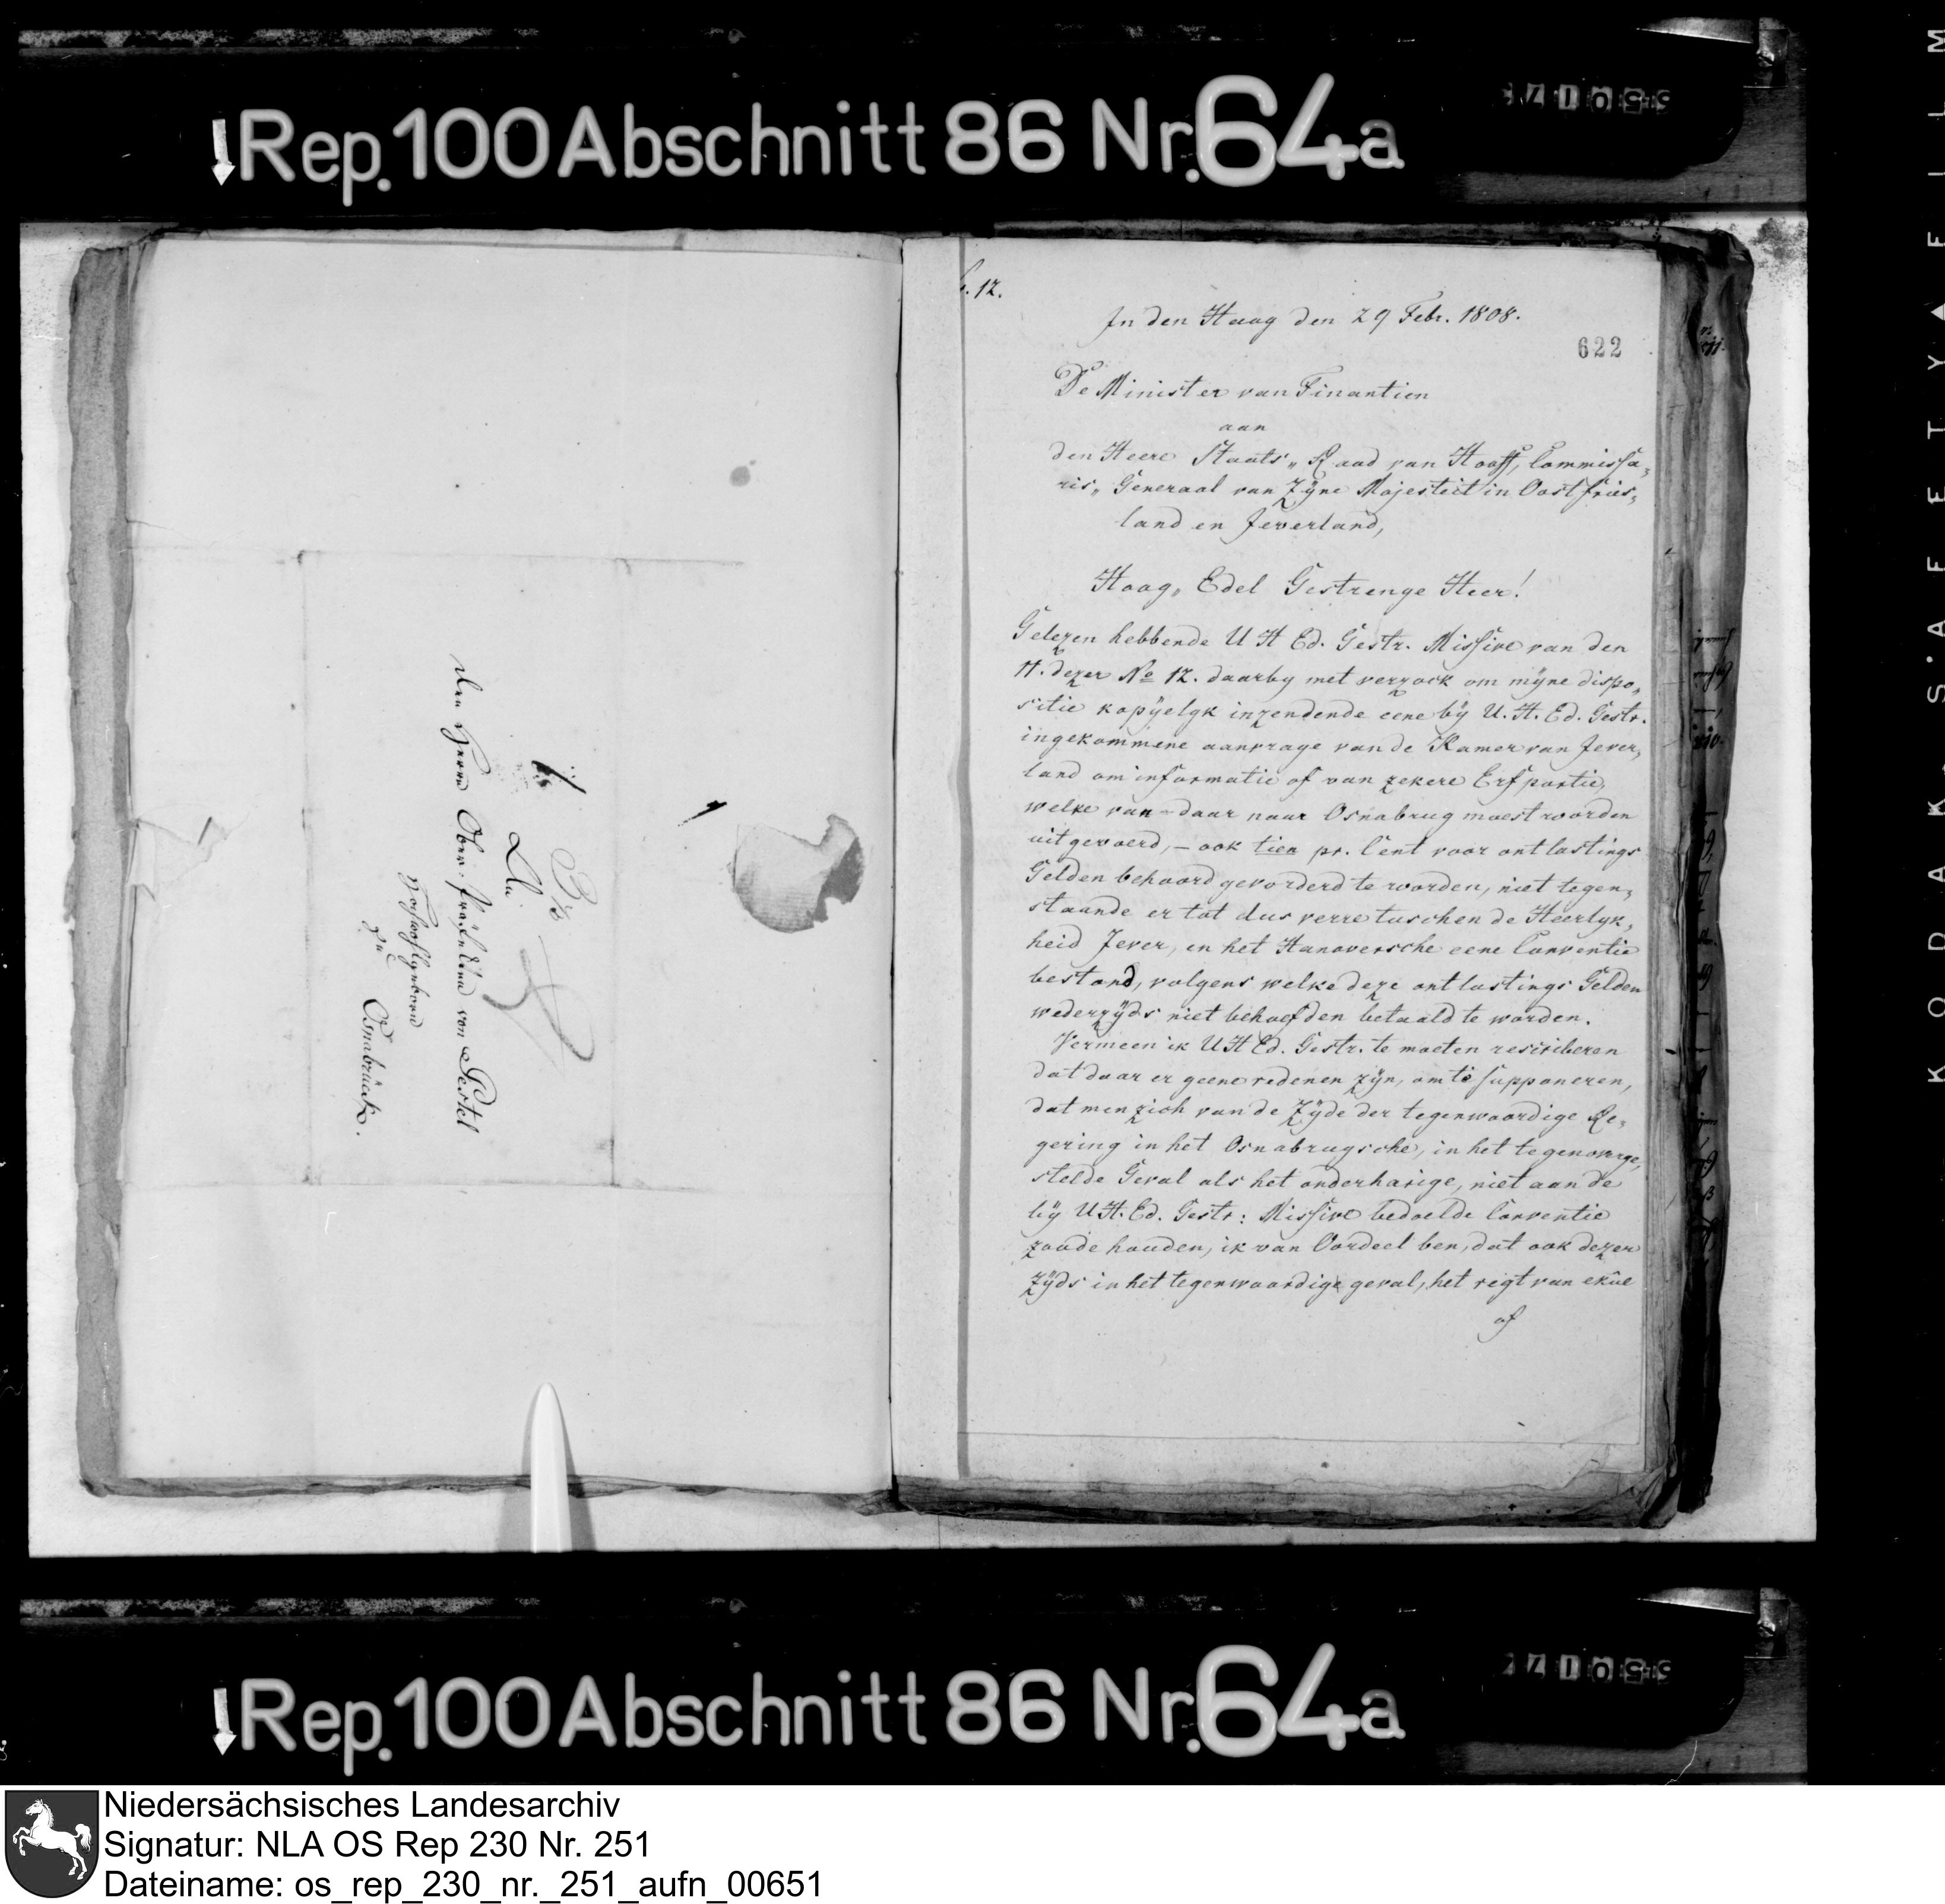 Rep. 100 Abschnitt 86 Nr. 64a
An
den Herrn Ober-
von Pestel
zu
Osnabrück.
12.
In den Haag den 29 Febr. 1808.
622
De Minister van Finantien
aan
den Heere Staats„ Raad van Hooff, Commissa„
ris„ Generaal van Zijne Majesteit in Oostfries„
land en Jeverland,
Hoog„ Edel Gestrenge Heer!
Gelezen hebbende U H Ed. Gestr. Missive van den
11. dezer No 12. daarby met verzoek om mijne dispo„
sitie kopijelyk inzendende eene bij U. H. Ed. Gestr.
ingekommene aanvrage van de Kamer van Jever„
land om informatie of van zekere Erfportie,
welke van daar naar Osnabrug moest worden
uitgevoerd, – ook tien pr. Cent voor ontlastings
Gelden behoord gevorderd te worden, niet tegen„
staande er tot dus verre tuschen de Heerlyk„
heid Jever, en het Hanoversche eene Conventie
bestond, volgens welke deze ontlastings Gelden
wederzijds niet behoefden betaald te worden.
Vermeen ik U H Ed. Gestr. te moeten resciberen
dat daar er geene redenen zijn, om te supponeren,
dat men zich van de Zijde der tegenwoordige Re„
gering in het Osnabrugsche, in het tegenoverge„
stelde Geval als het onderhavige, niet aan de
bij U H. Ed. Gestr: Missive bedoelde Conventie
zoude houden, ik van Oordeel ben, dat ook dezer
Zijds in het tegenwoordige geval, het regt van
of
Rep. 100 Abschnitt 86 Nr. 64a
KODAK·SAFETY▲FILM
Niedersächsisches Landesarchiv
Signatur: NLA OS Rep 230 Nr. 251
Dateiname: os_rep_230_nr._251_aufn_00651